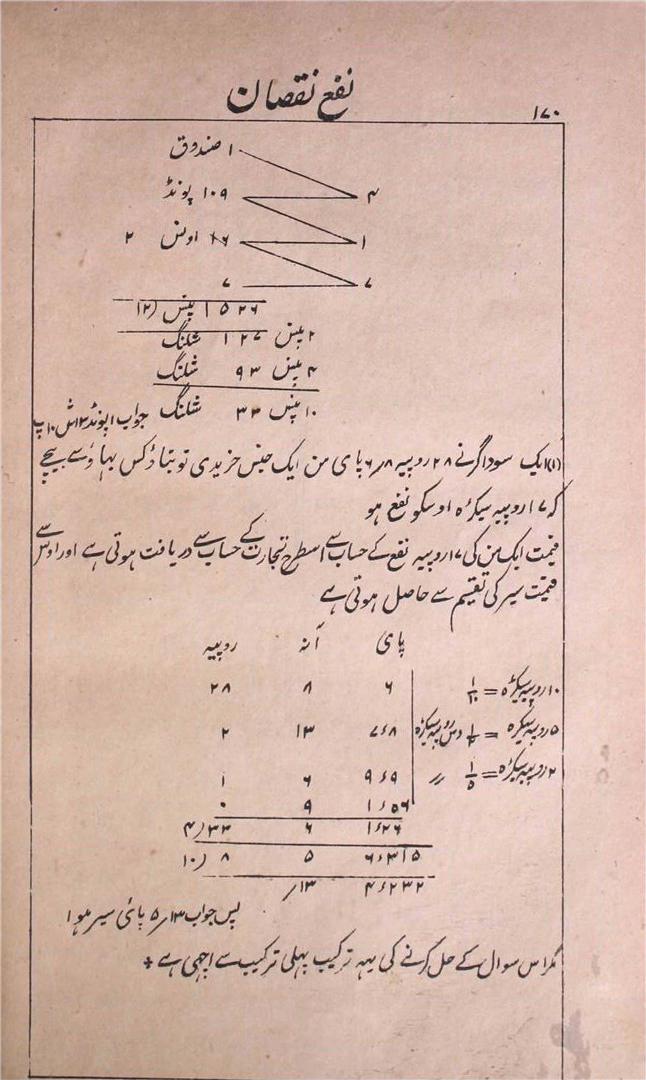 ۱۷۰
نفع نقصان
۱ صندوق
۱۰۹ پونڈ ۴
۱۶ اونس ۲ ۱
۷ ۷
۱۵۲۶ پنس (۱۲
۲ پنس ۱۲۷ شلنگ
۴ پنس ۹۳ شلنگ
۱۰ پنس ۳۳ شلنگ جواب ۱ پونڈ ۱۳ ش ۱۰ پ
(۱) ایک سوداگر نے ۲۸ روپیہ ۸/ ۶ پای من ایک جنس خریدی تو بتاؤ کس بہاؤ سے بیچے
کہ ۱۷ روپیہ سیکڑہ اوسکو نفع ہو
قیمت ایک من کی ۱۷ روپیہ نفع کے حساب سے اسطرح تجارت کے حساب سے دریافت ہوتی ہے اور اوس سے
قیمت سیر کی تقسیم سے حاصل ہوتی ہے
پای آنہ روپیہ
۱۰ روپیہ سیکڑہ = ۱/۱۰ ۶ ۸ ۲۸
۵ روپیہ سیکڑہ = ۱/۲ دس روپیہ سیکڑہ ۷ء۸ ۱۳ ۲
۲ روپیہ سیکڑہ = ۱/۵ 〃 ۹ء۹ ۶ ۱
۱ء۵۶ ۹ ۰
۱ء۲۶ ۶ ۳۳ (۴
۶ء۳۱۵ ۵ ۸ (۱۰
۴ء۲۳۲ ۱۳/
پس جواب ۱۳/ ۵ پائی سیر ہوا
مگر اس سوال کے حل کرنے کی یہہ ترکیب پہلی ترکیب سے اچہی ہے +